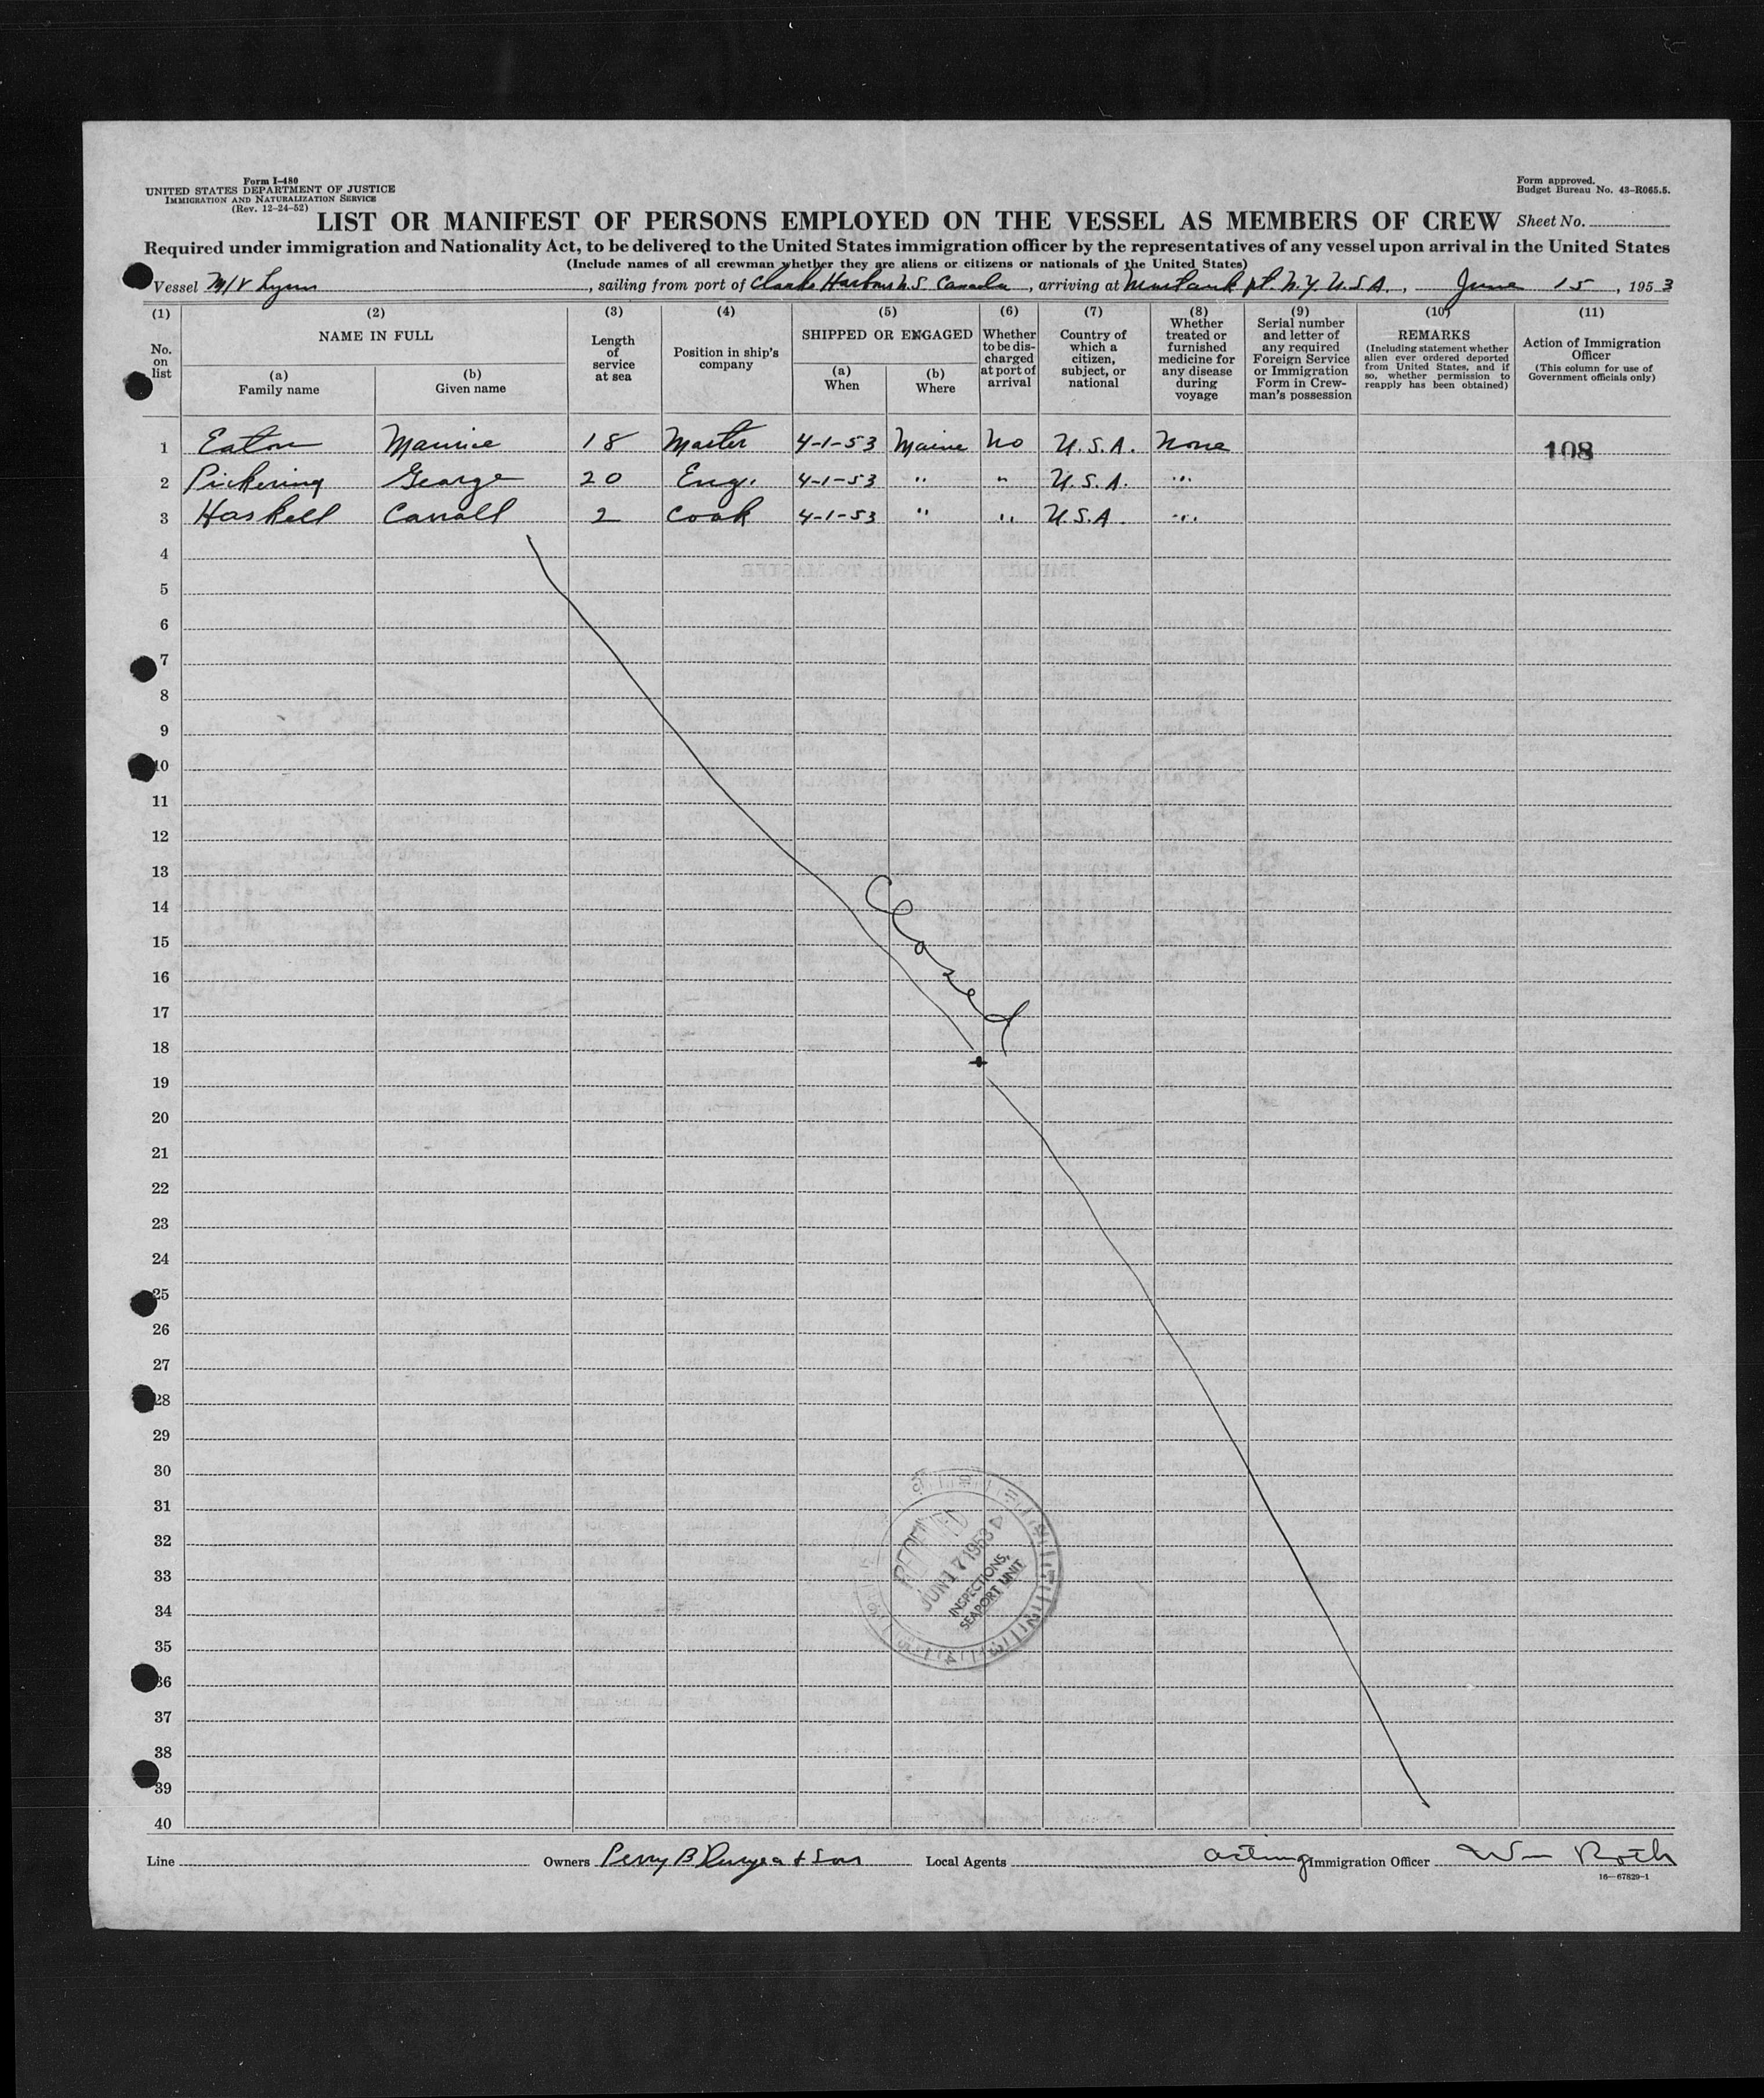 Form I-480
UNITED STATES DEPARTMENT OF JUSTICE
IMMIGRATION AND NATURALIZATION SERVICE
(Rev. 12-24-52)
Form approved.
Budget Bureau No. 43-R065.5.
LIST OR MANIFEST OF PERSONS EMPLOYED ON THE VESSEL AS MEMBERS OF CREW
Sheet No.
Required under immigration and Nationality Act, to be delivered to the United States immigration officer by the representatives of any vessel upon arrival in the United States
(Include names of all crewman whether they are aliens or citizens or nationals of the United States)
Vessel M/V Lynn, sailing from port of Clarks Harbour N.S. Canada, arriving at pt. N.Y. U.S.A., June 15, 1953
(1) (2) (3) (4) (5) (6) (7) (8) (9) (10) (11)
No. on list
NAME IN FULL
(a) Family name
(b) Given name
Length of service at sea
Position in ship's company
SHIPPED OR ENGAGED
(a) When
(b) Where
Whether to be discharged at port of arrival
Country of which a citizen, subject, or national
Whether treated or furnished medicine for any disease during voyage
Serial number and letter of any required Foreign Service or Immigration Form in Crewman's possession
REMARKS
(Including statement whether alien ever ordered deported from United States, and if so, whether permission to reapply has been obtained)
Action of Immigration Officer
(This column for use of Government officials only)
1 Eaton Maurice 18 Master 4-1-53 Maine No U.S.A. None 108
2 Pickering George 20 Eng. 4-1-53 " " U.S.A. "
3 Haskell Carroll 2 Cook 4-1-53 " " U.S.A. "
4
5
6
7
8
9
10
11
12
13
14
15
16
17
18
19
20
21
22
23
24
25
26
27
28
29
30
31
32
33
34
35
36
37
38
39
40
Closed
RECEIVED
JUN 17 1953
INSPECTIONS,
SEAPORT UNIT
Line
Owners Perry B Duryea + Son
Local Agents
Acting Immigration Officer Wm Roth
16—67829-1